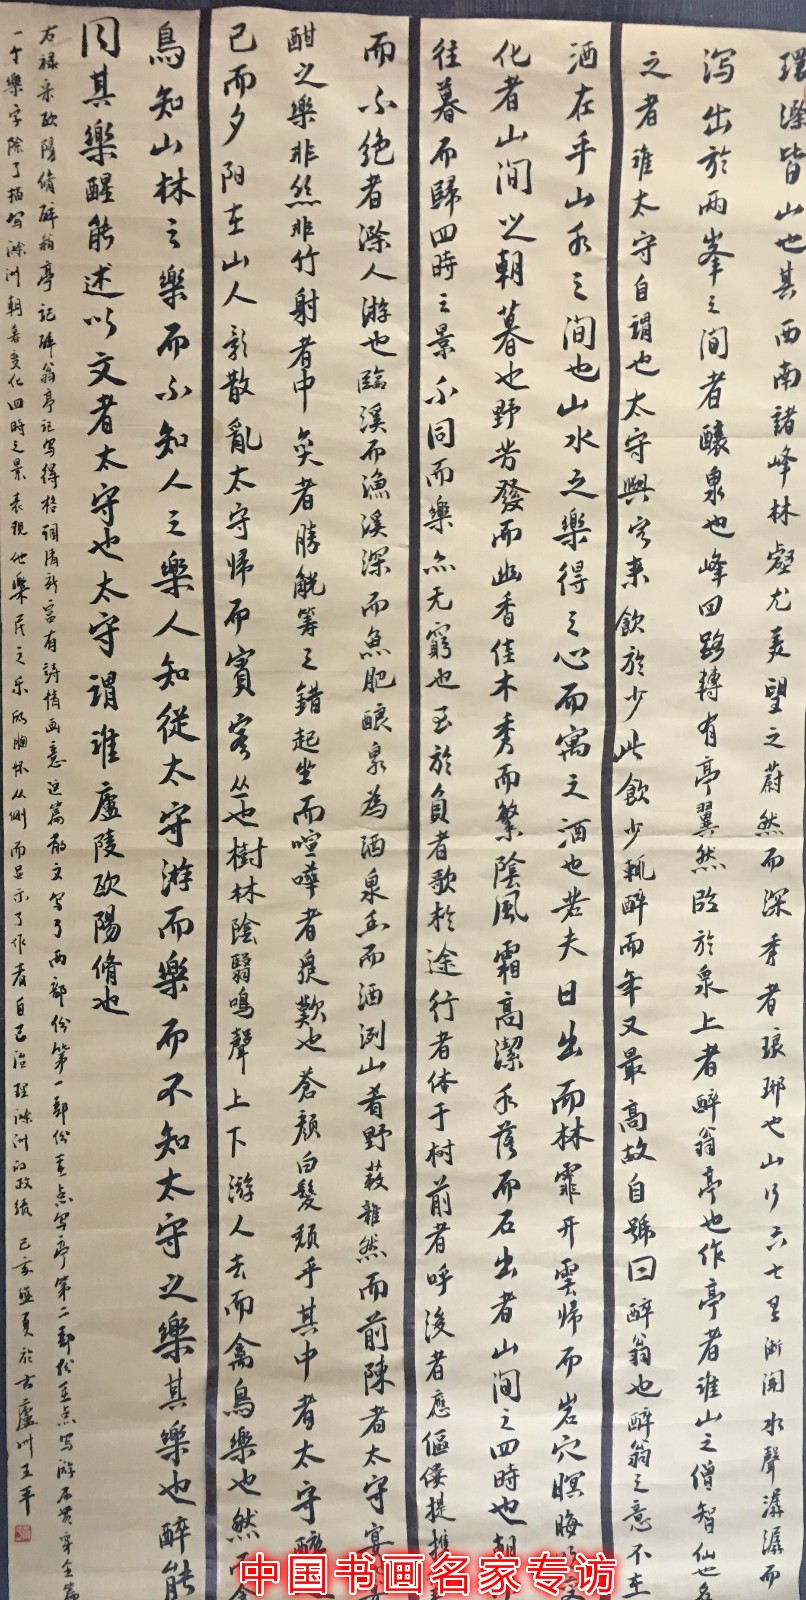 環滁皆山也其西南諸峰林壑尤美望之蔚然而深秀者琅琊也山行六七里漸聞水聲潺潺而
泻出於兩峯之间者釀泉也峰回路轉有亭翼然臨於泉上者醉翁亭也作亭者谁山之僧智仙也名
之者谁太守自謂也太守與客来飲於少此飲少輒醉而年又最高故自號曰醉翁也醉翁之意不在
酒在乎山水之间也山水之樂得之心而寓之酒也若夫日出而林霏开雲归而岩穴暝晦明变
化者山间之朝暮也野芳發而幽香佳木秀而繁陰風霜高潔水落而石出者山间之四時也朝
往暮而歸四時之景不同而樂亦无窮也至於負者歌於途行者休于树前者呼後者應傴僂提携
而不绝者滁人游也臨溪而漁溪深而魚肥酿泉為酒泉香而酒洌山肴野蔌雜然而前陳者太守宴
酣之樂非丝非竹射者中奕者勝觥筹之錯起坐而喧嘩者衆歡也蒼颜白髮颓乎其中者太守醉
已而夕阳在山人影散亂太守归而賓客从也樹林陰翳鳴聲上下游人去而禽鳥樂也然而禽
鳥知山林之樂而不知人之樂人知從太守游而樂而不知太守之樂其樂也醉能
同其樂醒能述以文者太守也太守謂谁廬陵欧陽脩也
右禄宋欧陽脩醉翁亭記醉翁亭记写得格调清新富有詩情画意这篇散文写了两部份第一部份重点写亭第二部份重点写游而贯穿全篇
一个樂字除了描写滁州朝暮变化四时之景表現他樂民之乐的胸怀从侧而显示了作者自己治理滁州的政绩 己亥並夏於古廬州王平
中国书画名家专访